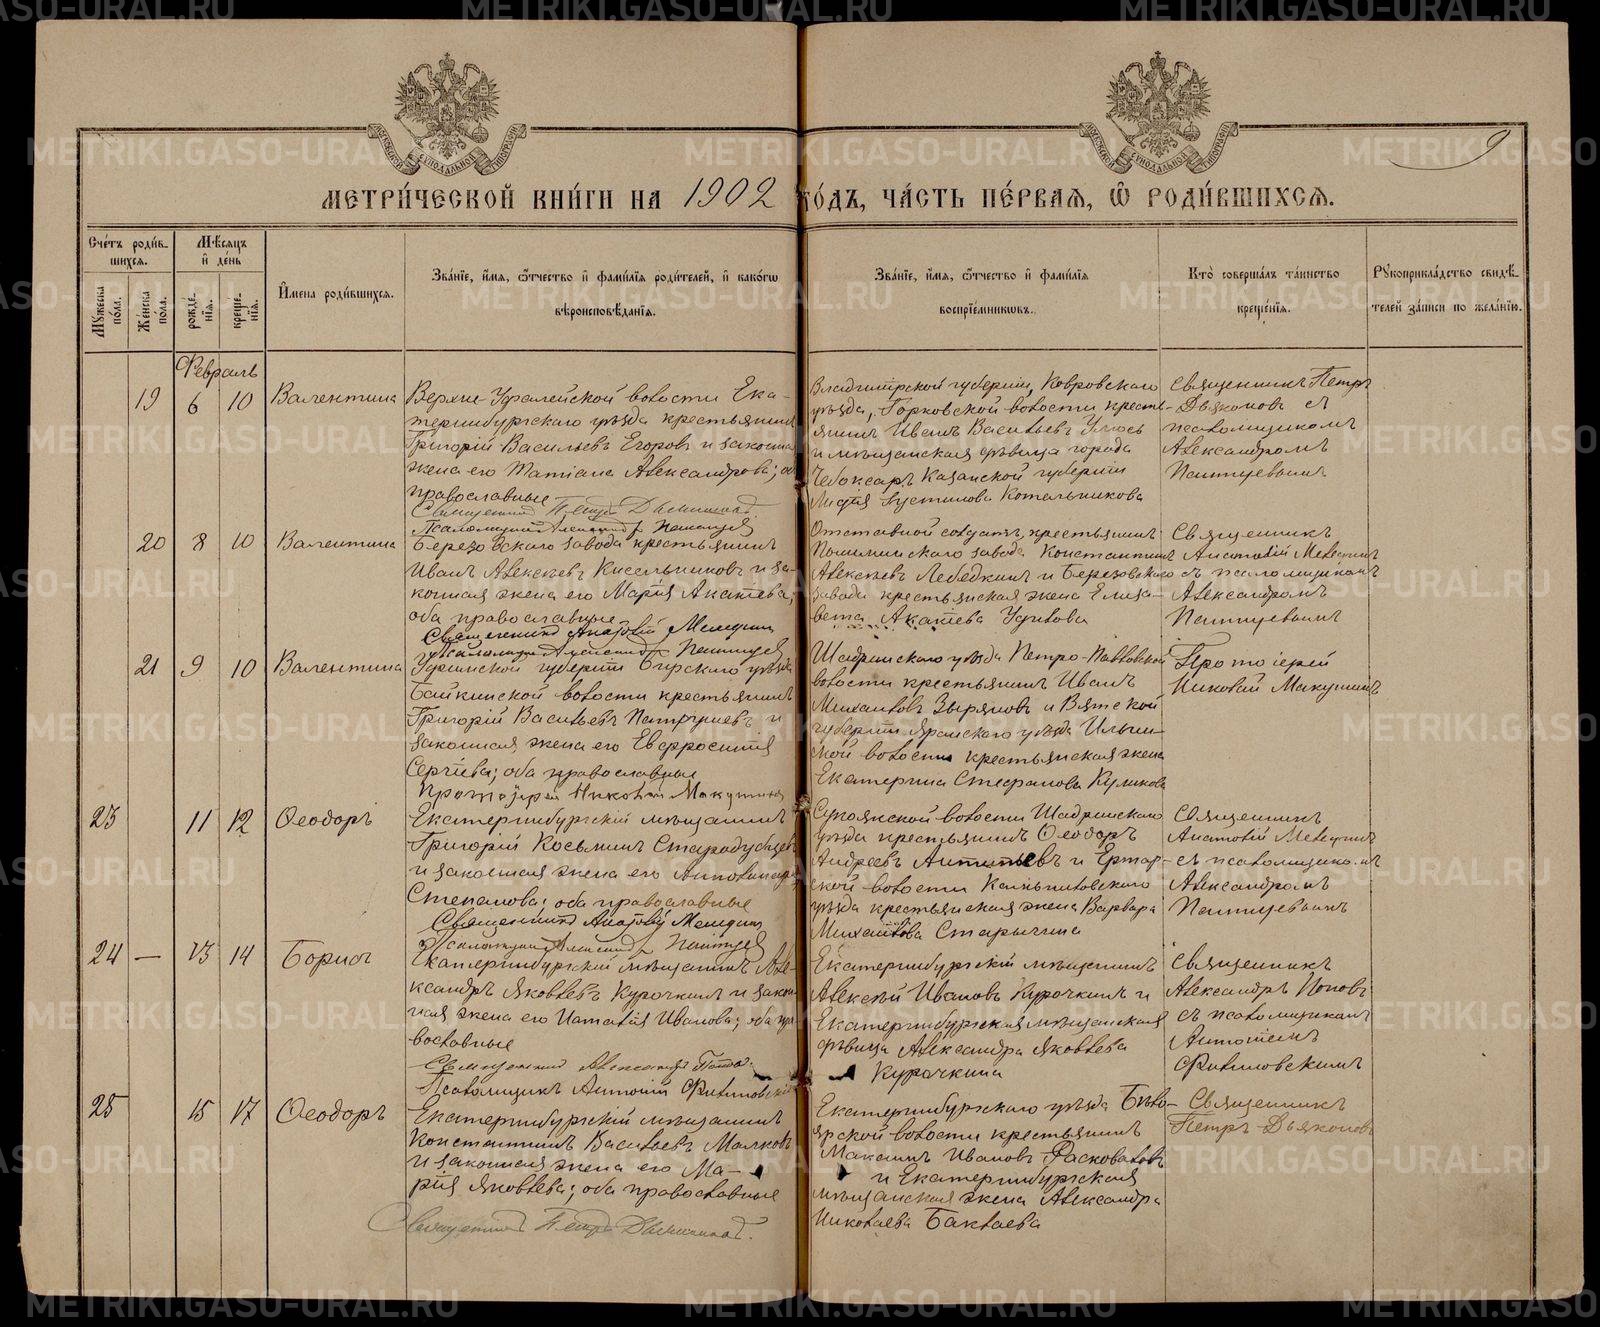 9
МЕТРИ́ЧЕСКОЙ КНИ́ГИ НА 1902 ГО́ДЪ, ЧА́СТЬ ПЕ́РВАЯ, Ѿ РОДИ́ВШИХСЯ.
Сче́тъ роди́в-
шихся.
Мꙋ́жеска по́ла.
Же́нска по́ла.
Мѣ́сяцъ
и де́нь
рожде́-
нїя.
креще́-
нїя.
Имена роди́вшихся.
Зва́нїе, и́мя, ѻ́тчество и фами́лїя роди́телей, и како́гѡ
вѣроисповѣ́данїя.
Зва́нїе, и́мя, ѻ́тчество и фами́лїя
воспрїе́мникѡвъ.
Кто̀ соверша́лъ та́инство
креще́нїя.
Рꙋкоприкла́дство свидѣ́-
телей за́писи по жела́нїю.
Февраль
19 6 10 Валентина
Верхне-Уфалейской волости Ека-
теринбургскаго уѣзда крестьянинъ
Григорій Васильевъ Егоровъ и законная
жена его Татіана Александрова; оба
православные
Священникъ Петръ Дьяконовъ
Псаломщикъ Александръ
Владимірской губерніи, Ковровскаго
уѣзда, Горковской волости кресть-
янинъ Иванъ Васильевъ
и мѣщанская дѣвица города
Чебоксаръ Казанской губерніи
Лидія Іустинова Котельникова
Священникъ Петръ
Дьяконовъ съ
псаломщикомъ
Александромъ
20 8 10 Валентина
Березовскаго завода крестьянинъ
Иванъ Алексѣевъ Кисельниковъ и за-
конная жена его Марія Акатіева,
оба православные
Священникъ Анатолій
Псаломщикъ Александръ
Отставной солдатъ, крестьянинъ
завода Константинъ
Алексѣевъ Лебедкинъ и Березовскаго
завода крестьянская жена Елиза-
вета Акатіева
Священникъ
Анатолій
съ псаломщикомъ
Александромъ
21 9 10 Валентина
Уфимской губерніи Бирскаго уѣзда
Байкинской волости крестьянинъ
Григорій Васильевъ и
законная жена его Евфросинія
Сергіева; оба православные
Протоіерей Николай Макушинъ
Шадринскаго уѣзда Петро-Павловской
волости крестьянинъ Иванъ
Михаиловъ Зыряновъ и Вятской
губерніи Яранскаго уѣзда Ильин-
ской волости крестьянская жена
Екатерина Стефанова Куликова
Протоіерей
Николай Макушинъ
23 11 12 Ѳеодоръ
Екатеринбургскій мѣщанинъ
Григорій Косьминъ Стародубцевъ
и законная жена его Апполинарія
Степанова; оба православные
Священникъ Анатолій
Псаломщикъ Александръ
волости Шадринскаго
уѣзда крестьянинъ Ѳеодоръ
Андреевъ и
ской волости Камышловскаго
уѣзда крестьянская жена Варвара
Михаилова Старыгина
Священникъ
Анатолій
съ псаломщикомъ
Александромъ
24 — 13 14 Борисъ
Екатеринбургскій мѣщанинъ Але-
ксандръ Яковлевъ Курочкинъ и закон-
ная жена его Наталія Иванова; оба пра-
вославные
Священникъ Александръ Поповъ.
Псаломщикъ Антоній
Екатеринбургскій мѣщанинъ
Алексѣй Ивановъ Курочкинъ и
Екатеринбургская мѣщанская
дѣвица Александра Яковлева
Курочкина
Священникъ
Александръ Поповъ
съ псаломщикомъ
Антоніемъ
25 15 17 Ѳеодоръ
Екатеринбургскій мѣщанинъ
Константинъ Васильевъ Малковъ
и законная жена его Ма-
рія Яковлева; оба православные
Священникъ Петръ Дьяконовъ.
Екатеринбургскаго уѣзда Бѣло-
ярской волости крестьянинъ
Максимъ Ивановъ
и Екатеринбургская
мѣщанская жена Александра
Николаева Баклаева
Священникъ
Петръ Дьяконовъ
METRIKI.GASO-URAL.RU